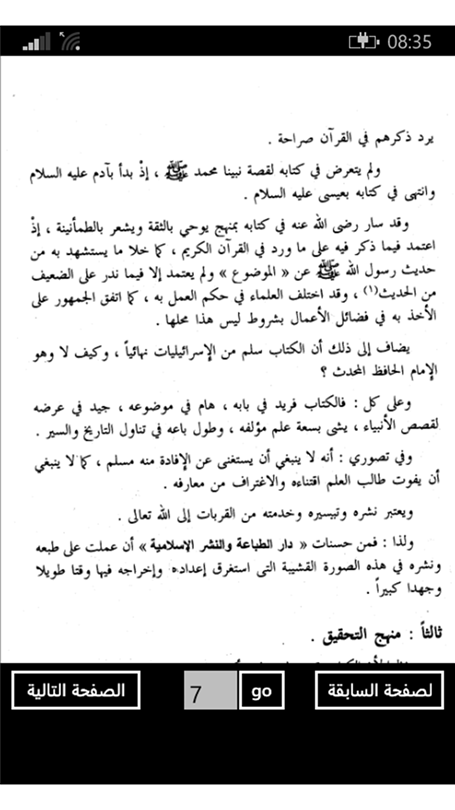 08:35
يرد ذكرهم في القرآن صراحة .
ولم يتعرض في كتابه لقصة نبينا محمد ﷺ ، إذْ بدأ بآدم عليه السلام
وانتهى في كتابه بعيسى عليه السلام .
وقد سار رضى الله عنه في كتابه بمنهج يوحي بالثقة ويشعر بالطمأنينة ، إذْ
اعتمد فيما ذكر فيه على ما ورد في القرآن الكريم ، كما خلا ما يستشهد به من
حديث رسول الله ﷺ عن « الموضوع » ولم يعتمد إلا فيما ندر على الضعيف
من الحديث(١) ، وقد اختلف العلماء في حكم العمل به ، كما اتفق الجمهور على
الأخذ به في فضائل الأعمال بشروط ليس هذا محلها .
يضاف إلى ذلك أن الكتاب سلم من الإسرائيليات نهائياً ، وكيف لا وهو
الإمام الحافظ المحدث ؟
وعلى كل : فالكتاب فريد في بابه ، هام في موضوعه ، جيد في عرضه
لقصص الأنبياء ، يشى بسعة علم مؤلفه ، وطول باعه في تناول التاريخ والسير .
وفي تصوري : أنه لا ينبغي أن يستغنى عن الإفادة منه مسلم ، كما لا ينبغي
أن يفوت طالب العلم اقتناءه والاغتراف من معارفه .
ويعتبر نشره وتيسيره وخدمته من القربات إلى الله تعالى .
ولذا : فمن حسنات « دار الطباعة والنشر الإسلامية » أن عملت على طبعه
ونشره في هذه الصورة القشيبة التى استغرق إعداده وإخراجه فيها وقتا طويلا
وجهدا كبيراً .
ثالثاً : منهج التحقيق .
لصفحة السابقة
go
7
الصفحة التالية